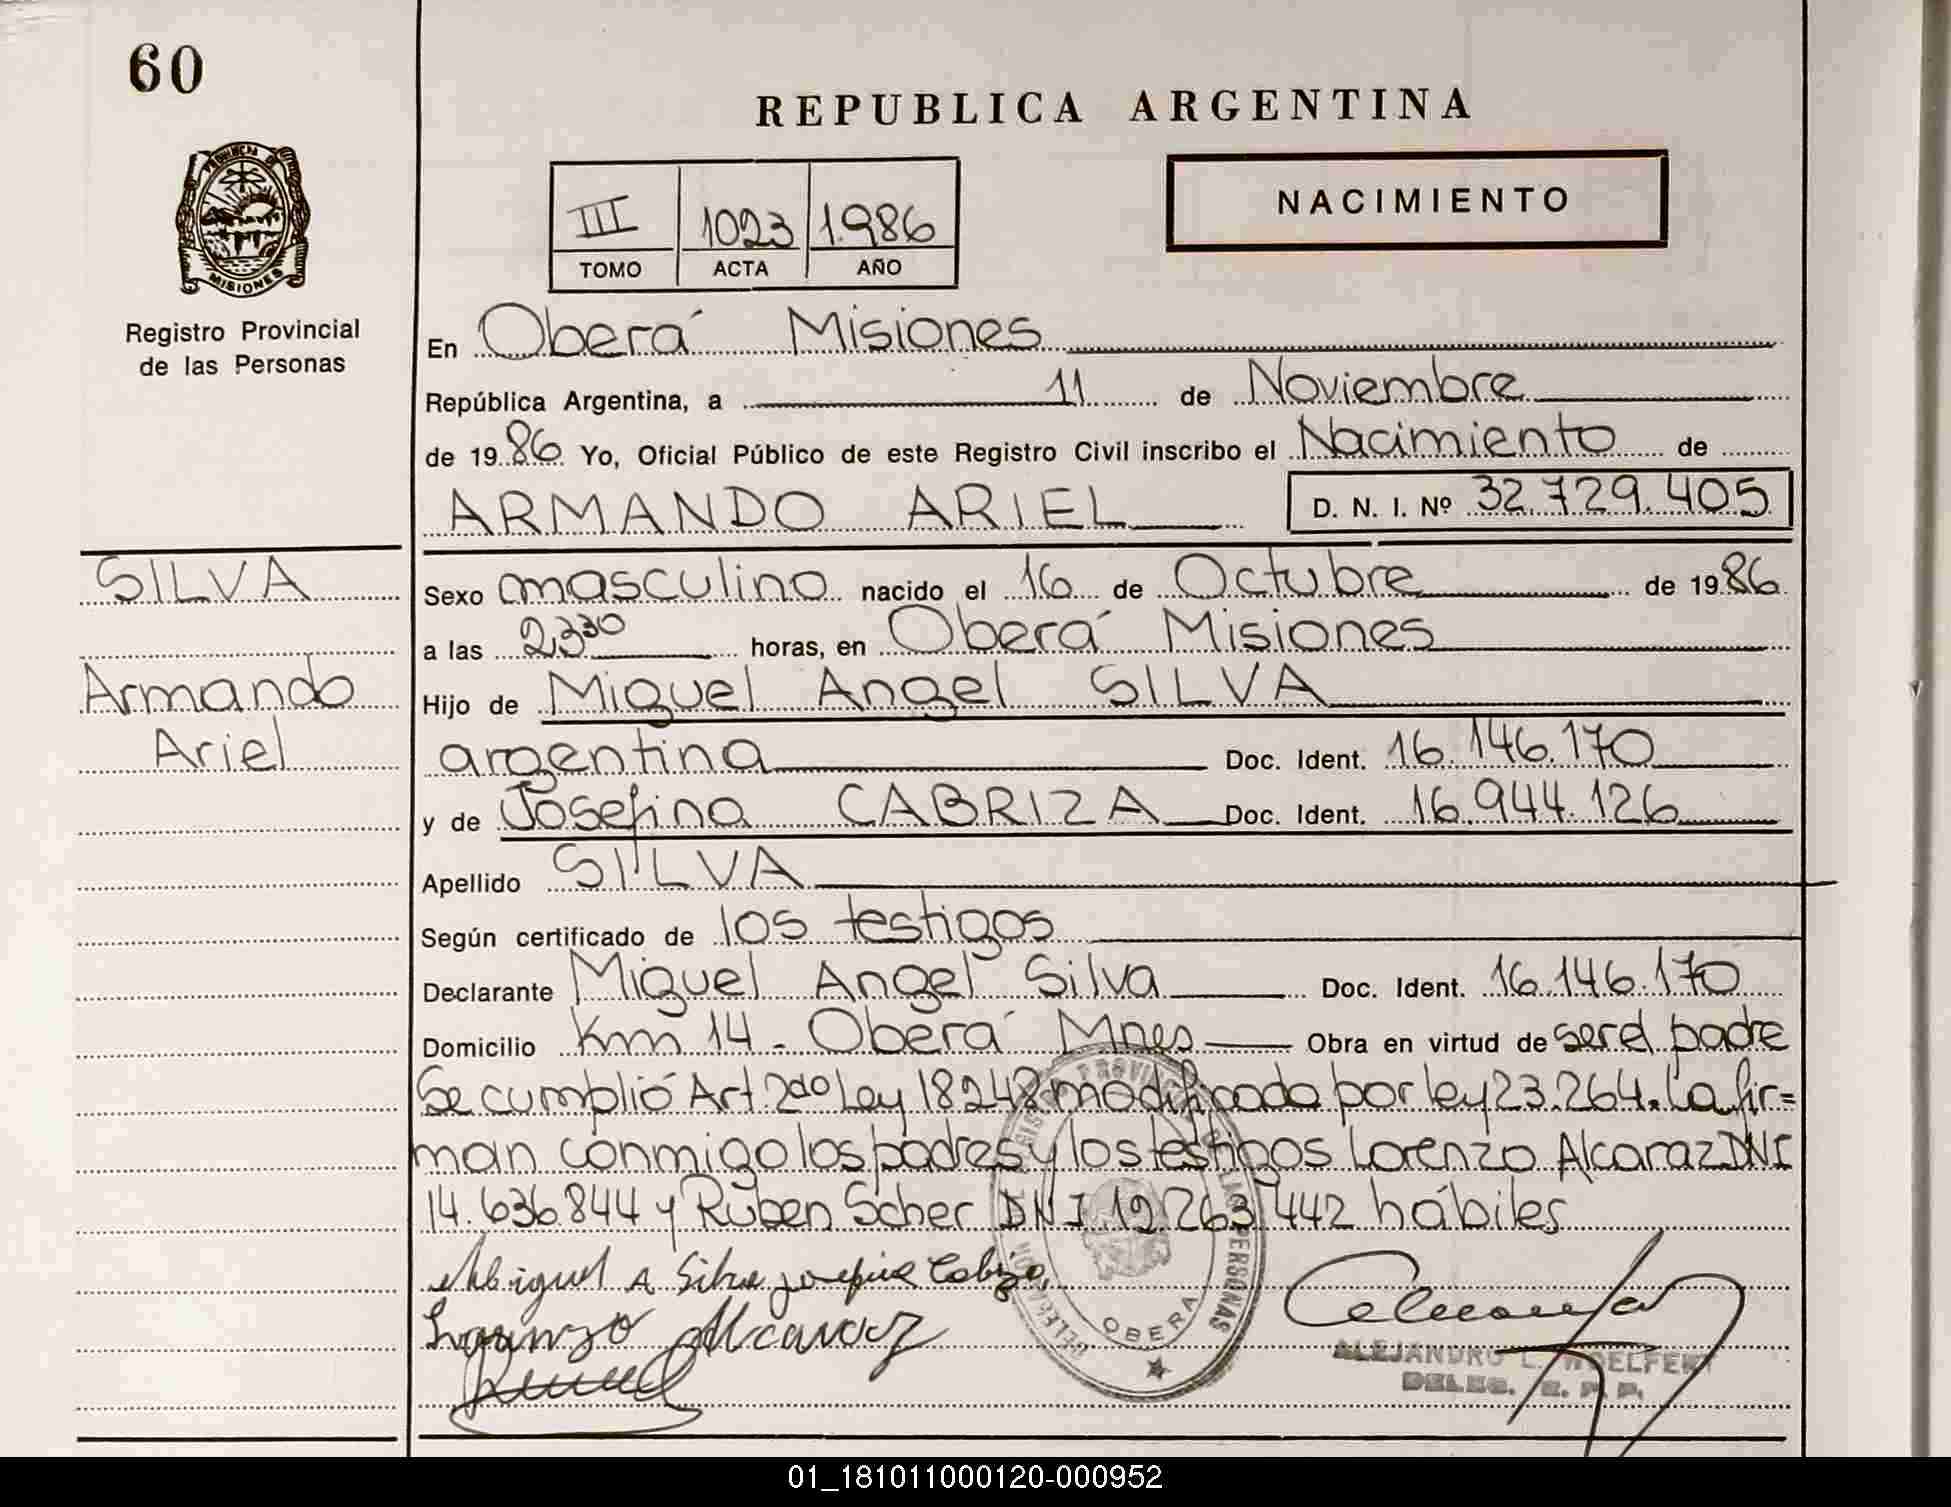 60
REPUBLICA ARGENTINA
PROVINCIA DE
MISIONES
Registro Provincial
de las Personas
III 1023 1.986
TOMO ACTA AÑO
NACIMIENTO
En Oberá Misiones
República Argentina, a 11 de Noviembre
de 1986 Yo, Oficial Público de este Registro Civil inscribo el Nacimiento de
ARMANDO ARIEL D. N. I. Nº 32.729.405
SILVA
Armando
Ariel
Sexo masculino nacido el 16 de Octubre de 1986
a las 2,330 horas, en Oberá Misiones
Hijo de Miguel Angel SILVA
argentina Doc. Ident. 16.146.170
y de Josefina CABRIZA Doc. Ident. 16.944.126
Apellido SILVA
Según certificado de los testigos
Declarante Miguel Angel Silva Doc. Ident. 16.146.170
Domicilio Km 14 - Oberá Mnes Obra en virtud de ser el padre
Se cumplió Art. 2do Ley 18248 modificada por ley 23.264. La fir=
man conmigo los padres y los testigos Lorenzo Alcaraz DNI
14.636.844 y Rúben Scher DNI 12.263.442 hábiles
Miguel A Silva Josefina Cabriza
Lorenzo Alcaraz
OBERA
ALEJANDRO L. WOELFERT
DELEG. R. P. P.
01_181011000120-000952